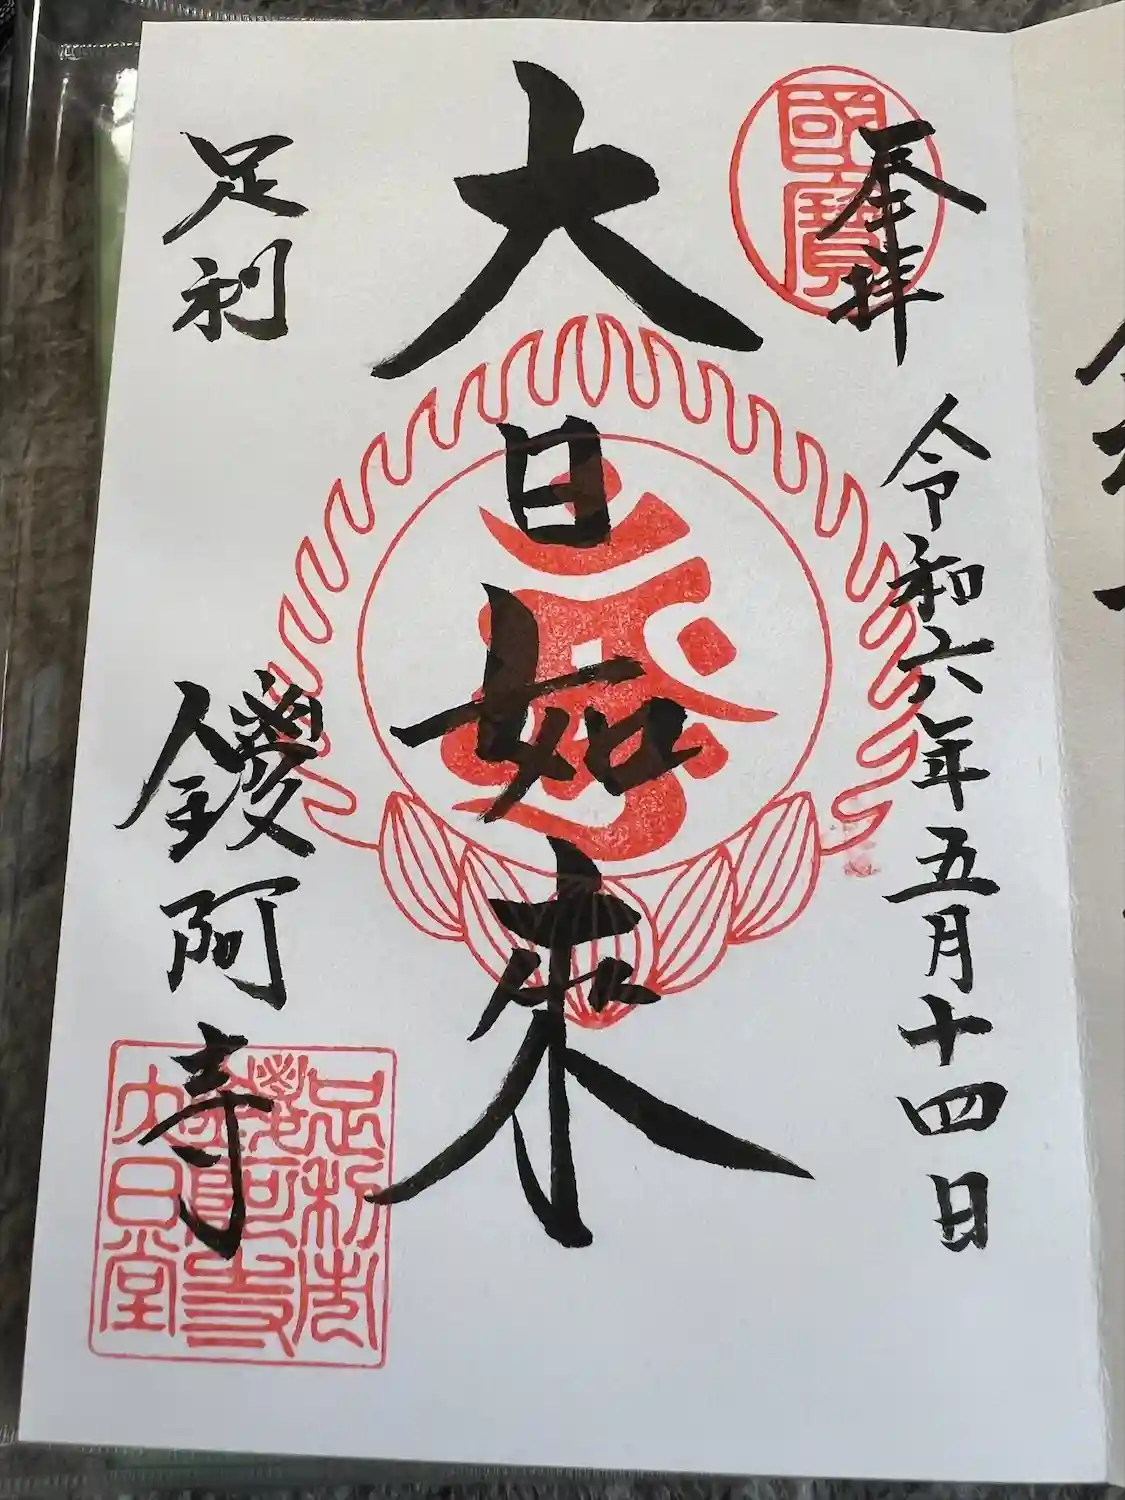 奉拝
國寶
令和六年五月十四日
大日如来
足利
鑁阿寺
足利市
鑁阿寺
大日堂